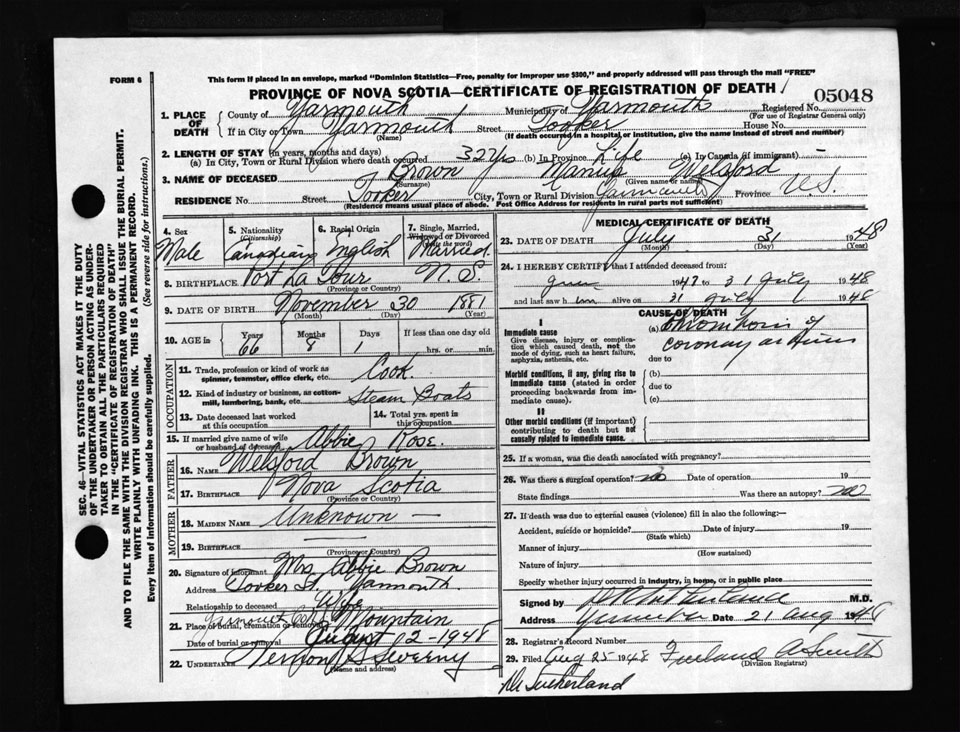 FORM 6
This form if placed in an envelope, marked "Dominion Statistics—Free, penalty for improper use $300," and properly addressed will pass through the mail "FREE"
PROVINCE OF NOVA SCOTIA—CERTIFICATE OF REGISTRATION OF DEATH
05048
1. PLACE OF DEATH
County of Yarmouth Municipality of Yarmouth Registered No.
(For use of Registrar General only)
If in City or Town Yarmouth Street Tooker House No.
(Name) (If death occurred in a hospital or institution, give the name instead of street and number)
2. LENGTH OF STAY (in years, months and days)
(a) In City, Town or Rural Division where death occurred 32 yrs (b) In Province Life (c) In Canada (if immigrant)
3. NAME OF DECEASED Brown Welsford
(Surname) (Given name or names)
RESIDENCE No. Street Tooker City, Town or Rural Division Yarmouth Province N.S.
(Residence means usual place of abode. Post Office Address for residents in rural parts not sufficient)
4. Sex
Male
5. Nationality
(Citizenship)
Canadian
6. Racial Origin
English
7. Single, Married, Widowed or Divorced
(Write the word)
Married.
8. BIRTHPLACE Port La Tour N. S.
(Province or Country)
9. DATE OF BIRTH November 30 1881
(Month) (Day) (Year)
10. AGE in Years Months Days If less than one day old
66 8 1 hrs. or min.
OCCUPATION
11. Trade, profession or kind of work as spinner, teamster, office clerk, etc. Cook
12. Kind of industry or business, as cotton-mill, lumbering, bank, etc. Steam Boats
13. Date deceased last worked at this occupation
14. Total yrs. spent in this occupation
15. If married give name of wife or husband of deceased Abbie Rose.
FATHER
16. NAME Welsford Brown
17. BIRTHPLACE Nova Scotia
(Province or Country)
MOTHER
18. MAIDEN NAME Unknown —
19. BIRTHPLACE
(Province or Country)
20. Signature of informant Mrs Abbie Brown
Address Tooker St. Yarmouth.
Relationship to deceased Wife
21. Place of burial, cremation or removal Yarmouth Mountain
Date of burial or removal August 02-1948
22. UNDERTAKER Vernon
(Name and address)
MEDICAL CERTIFICATE OF DEATH
23. DATE OF DEATH July 31 1948
(Month) (Day) (Year)
24. I HEREBY CERTIFY that I attended deceased from:
June 1947 to 31 July 1948
and last saw him alive on 31 July 1948
CAUSE OF DEATH
I
Immediate cause
Give disease, injury or complication which caused death, not the mode of dying, such as heart failure, asphyxia, asthenia, etc.
(a) Thrombosis of
coronary arteries
due to
Morbid conditions, if any, giving rise to immediate cause (stated in order proceeding backwards from immediate cause).
(b)
due to
(c)
II
Other morbid conditions (if important) contributing to death but not causally related to immediate cause.
25. If a woman, was the death associated with pregnancy?
26. Was there a surgical operation? no Date of operation 19
State findings Was there an autopsy? no
27. If death was due to external causes (violence) fill in also the following:—
Accident, suicide or homicide? Date of injury 19
(State which)
Manner of injury
(How sustained)
Nature of injury
Specify whether injury occurred in industry, in home, or in public place
Signed by M.D.
Address Yarmouth Date 21 Aug 1948
28. Registrar's Record Number
29. Filed Aug 25 1948 Smith
(Division Registrar)
Sutherland
SEC. 46—VITAL STATISTICS ACT MAKES IT THE DUTY
OF THE UNDERTAKER OR PERSON ACTING AS UNDER-
TAKER TO OBTAIN ALL THE PARTICULARS REQUIRED
IN THE "CERTIFICATE OF REGISTRATION OF DEATH"
AND TO FILE THE SAME WITH THE DIVISION REGISTRAR WHO SHALL ISSUE THE BURIAL PERMIT.
WRITE PLAINLY WITH UNFADING INK. THIS IS A PERMANENT RECORD.
Every item of information should be carefully supplied. (See reverse side for instructions.)